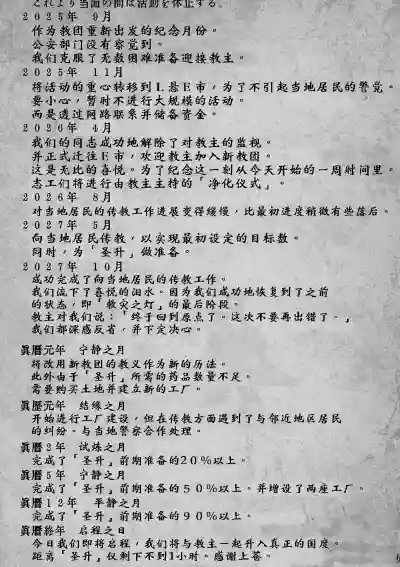 これより当面の間は活動を休止する。
２０２５年　９月
作为教团重新出发的纪念月份。
公安部门没有察觉到。
我们克服了无数困难准备迎接教主。
２０２５年　１１月
将活动的重心转移到Ｌ县Ｅ市，为了不引起当地居民的警觉。
要小心，暂时不进行大规模的活动。
而是透过网路联系并储备资金。
２０２６年　４月
我们的同志成功地解除了对教主的监视。
并正式迁往Ｅ市，欢迎教主加入新教团。
这是无比的喜悦。为了纪念这一刻从今天开始的一周时间里。
志工们将进行由教主主持的「净化仪式」。
２０２６年　８月
对当地居民的传教工作进展变得缓慢，比最初进度稍微有些落后。
２０２７年　５月
向当地居民传教，以实现最初设定的目标数。
同时，为「圣升」做准备。
２０２７年　１０月
成功完成了向当地居民的传教工作。
我们流下了喜悦的泪水。因为我们成功地恢复到了之前
的状态，即「救灾之灯」的最后阶段。
教主对我们说：「终于回到原点了。这次不要再出错了。」
我们都深感反省，并下定决心。
眞曆元年　宁静之月
将改用新教团的教义作为新的历法。
此外由于「圣升」所需的药品数量不足。
需要购买土地并建立新的工厂。
眞歷元年　结缘之月
开始进行工厂建设，但在传教方面遇到了与邻近地区居民
的纠纷。与当地警察合作处理。
眞曆２年　试炼之月
完成了「圣升」前期准备的２０％以上。
眞曆５年　宁静之月
完成了「圣升」前期准备的５０％以上。并增设了两座工厂。
眞曆１２年　平静之月
完成了「圣升」前期准备的９０％以上。
眞曆終年　启程之日
今日我们即将启程，我们将与教主一起升入真正的国度。
距离「圣升」仅剩下不到1小时。感谢上苍。